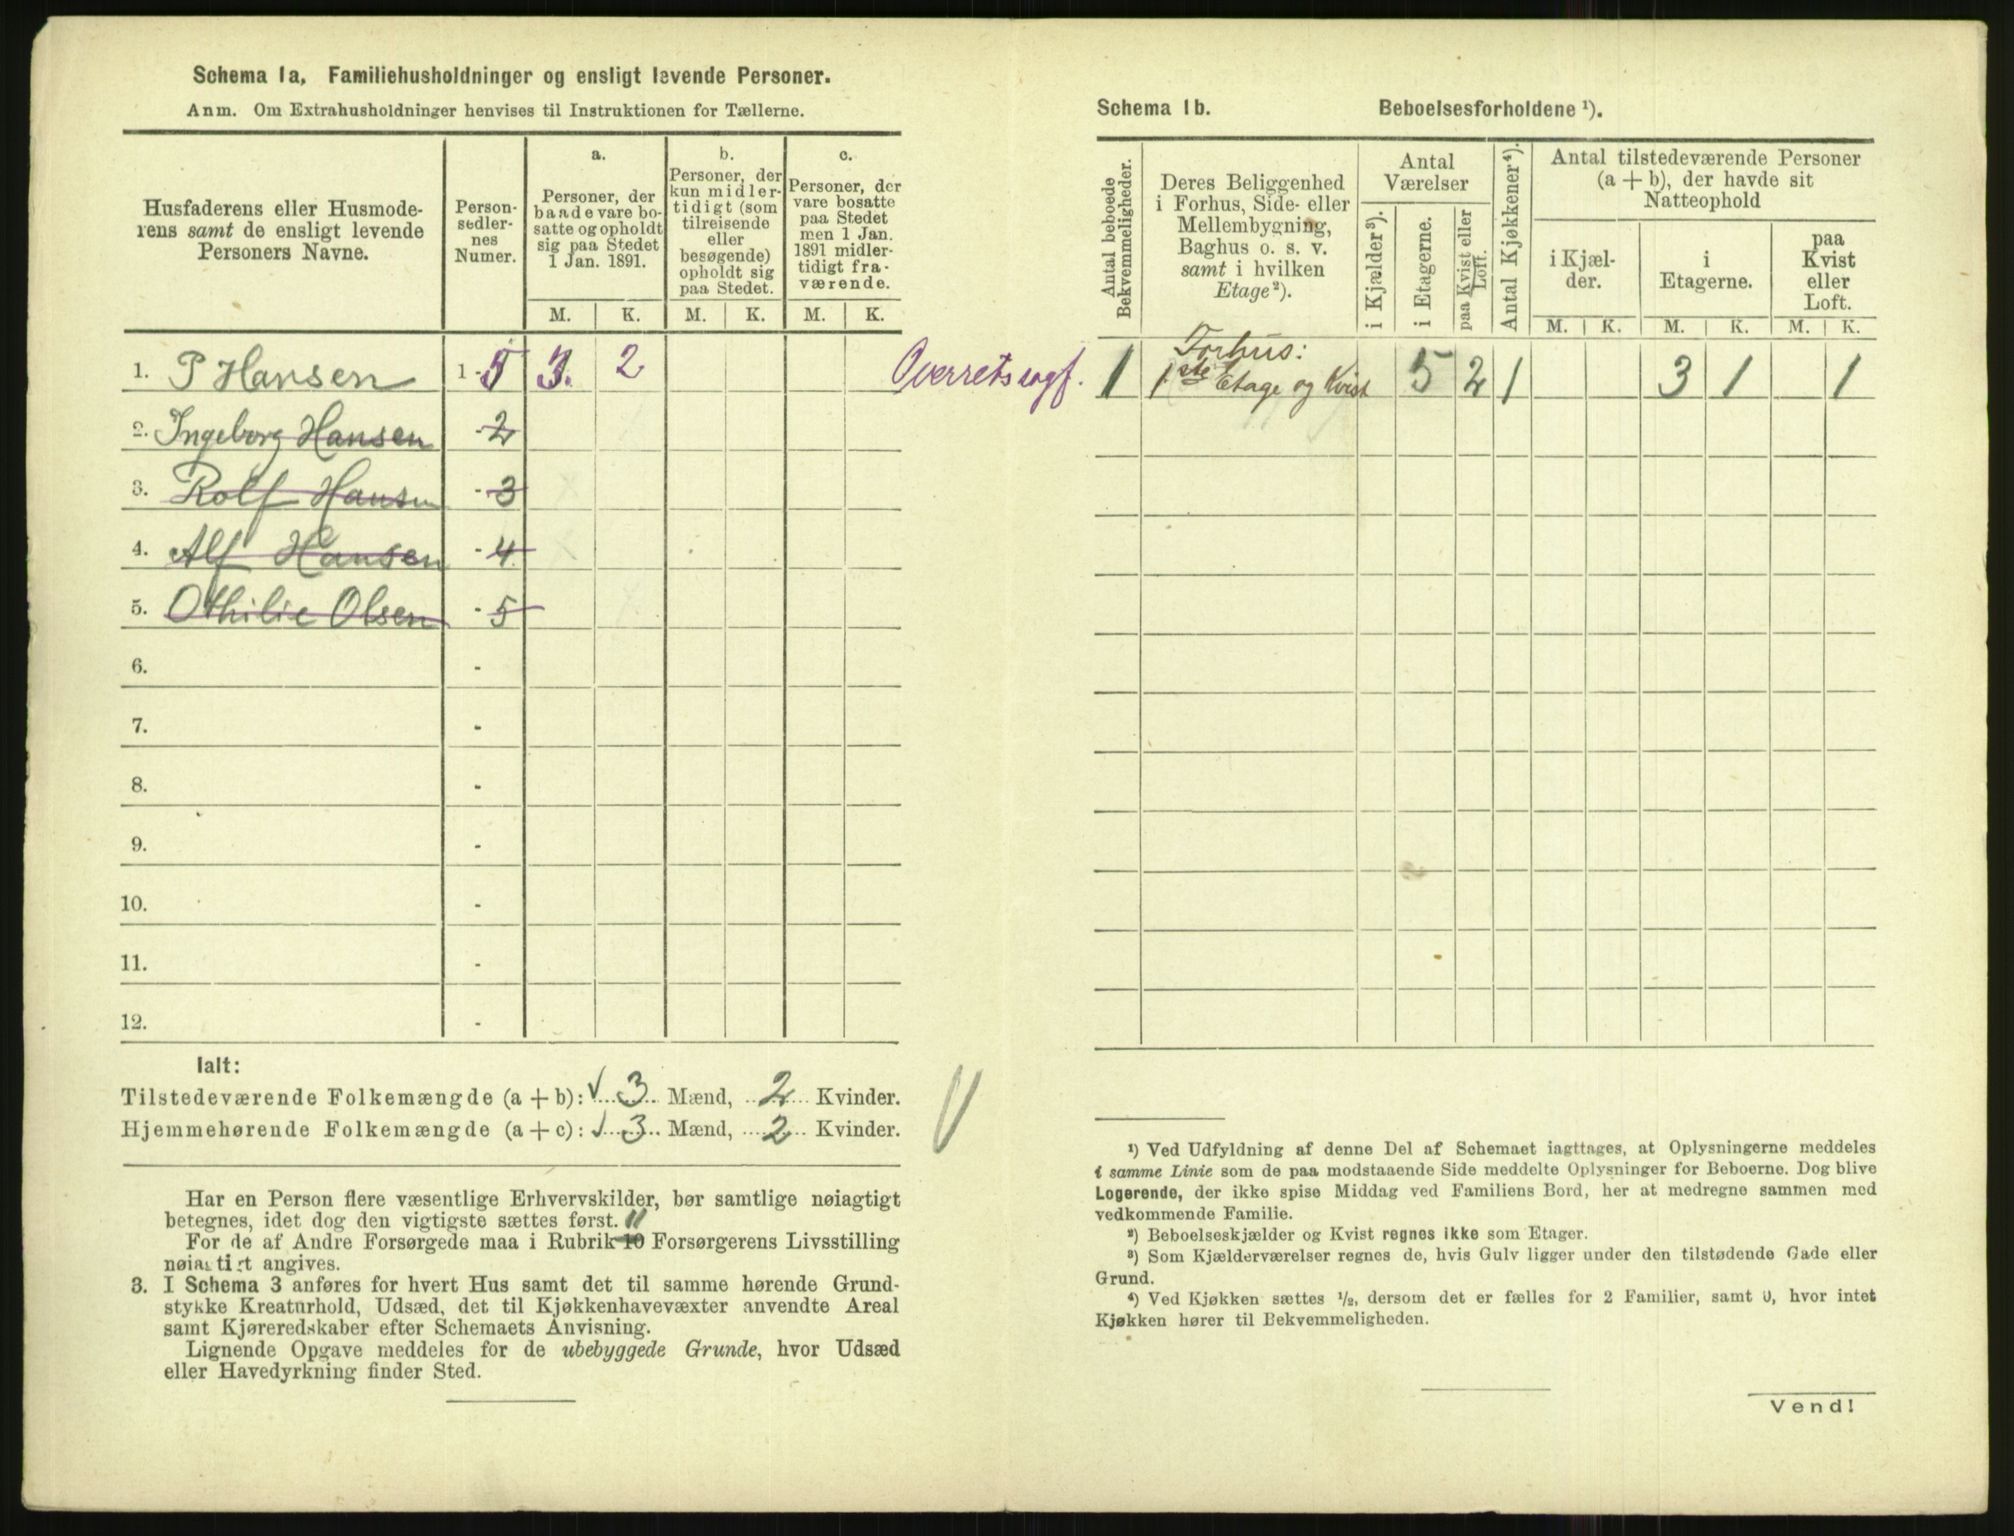 Schema 1a. Familiehusholdninger og ensligt levende Personer.
Anm. Om Extrahusholdninger henvises til Instruktionen for Tællerne.
Husfaderens eller Husmode-
rens samt de ensligt levende
Personers Navne.
Person-
sedler-
nes
Numer.
a.
Personer, der
baade vare bo-
satte og opholdt
sig paa Stedet
1 Jan. 1891.
b.
Personer, der
kun midler-
tidigt (som
tilreisende
eller
besøgende)
opholdt sig
paa Stedet.
c.
Personer, der
vare bosatte
paa Stedet
men 1 Jan.
1891 midler-
tidigt fra-
værende.
M. K. M. K. M. K.
1. P Hansen 1 - 5 3. 2 Overretssagf.
2. Ingeborg Hansen - 2
3. Rolf Hansen - 3
4. Alf Hansen - 4
5. Othilie Olsen - 5
6. -
7. -
8. -
9. -
10. -
11. -
12. -
Ialt:
Tilstedeværende Folkemængde (a + b): 3 Mænd, 2 Kvinder.
Hjemmehørende Folkemængde (a + c): 3 Mænd, 2 Kvinder.
Har en Person flere væsentlige Erhvervskilder, bør samtlige nøiagtigt
betegnes, idet dog den vigtigste sættes først.
11
For de af Andre Forsørgede maa i Rubrik 10 Forsørgerens Livsstilling
nøiagtigt angives.
3. I Schema 3 anføres for hvert Hus samt det til samme hørende Grund-
stykke Kreaturhold, Udsæd, det til Kjøkkenhavevæxter anvendte Areal
samt Kjøreredskaber efter Schemaets Anvisning.
Lignende Opgave meddeles for de ubebyggede Grunde, hvor Udsæd
eller Havedyrkning finder Sted.
Schema 1b. Beboelsesforholdene ¹).
Antal beboede
Bekvemmeligheder.
Deres Beliggenhed
i Forhus, Side- eller
Mellembygning,
Baghus o. s. v.
samt i hvilken
Etage²).
Antal
Værelser
i Kjælder³).
i Etagerne.
paa Kvist eller
Loft.
Antal Kjøkkener⁴).
Antal tilstedeværende Personer
(a + b), der havde sit
Natteophold
i Kjæl-
der.
i
Etagerne.
paa
Kvist
eller
Loft.
M. K. M. K. M. K.
Forhus:
1 1ste Etage og Kvist 5 2 1 3 1 1
¹) Ved Udfyldning af denne Del af Schemaet iagttages, at Oplysningerne meddeles
i samme Linie som de paa modstaaende Side meddelte Oplysninger for Beboerne. Dog blive
Logerende, der ikke spise Middag ved Familiens Bord, her at medregne sammen med
vedkommende Familie.
²) Beboelseskjælder og Kvist regnes ikke som Etager.
³) Som Kjælderværelser regnes de, hvis Gulv ligger under den tilstødende Gade eller
Grund.
⁴) Ved Kjøkken sættes ½, dersom det er fælles for 2 Familier, samt 0, hvor intet
Kjøkken hører til Bekvemmeligheden.
Vend!